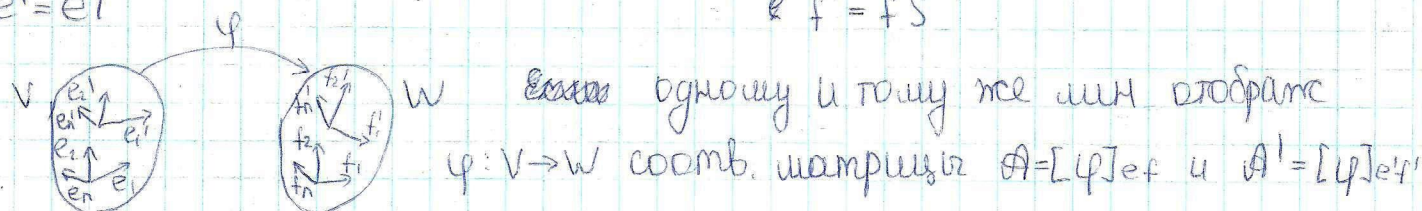 e' = eT
f' = f S
φ
V e₂' eₙ' e₁' e₂ eₙ e₁
f₂' fₙ' f₁' f₂ f₁ fₙ W
одному и тому же лин отображ
φ: V → W соотв. матрицы A=[φ]ef и A'=[φ]e'f'